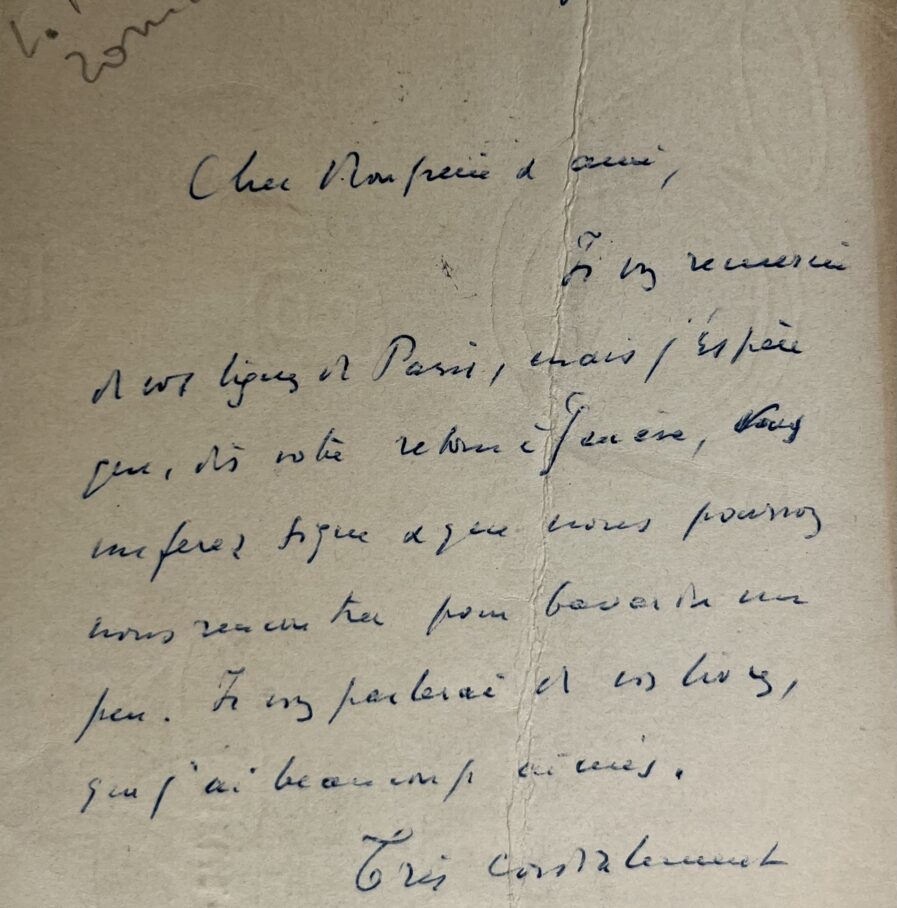 Cher Monsieur & ami,
Je vous remercie
de vos lignes de Paris, mais j'espère
que, dès votre retour à Genève, vous
me ferez signe & que nous pourrons
nous rencontrer pour bavarder un
peu. Je vous parlerai de vos livres,
que j'ai beaucoup aimés.
Très cordialement